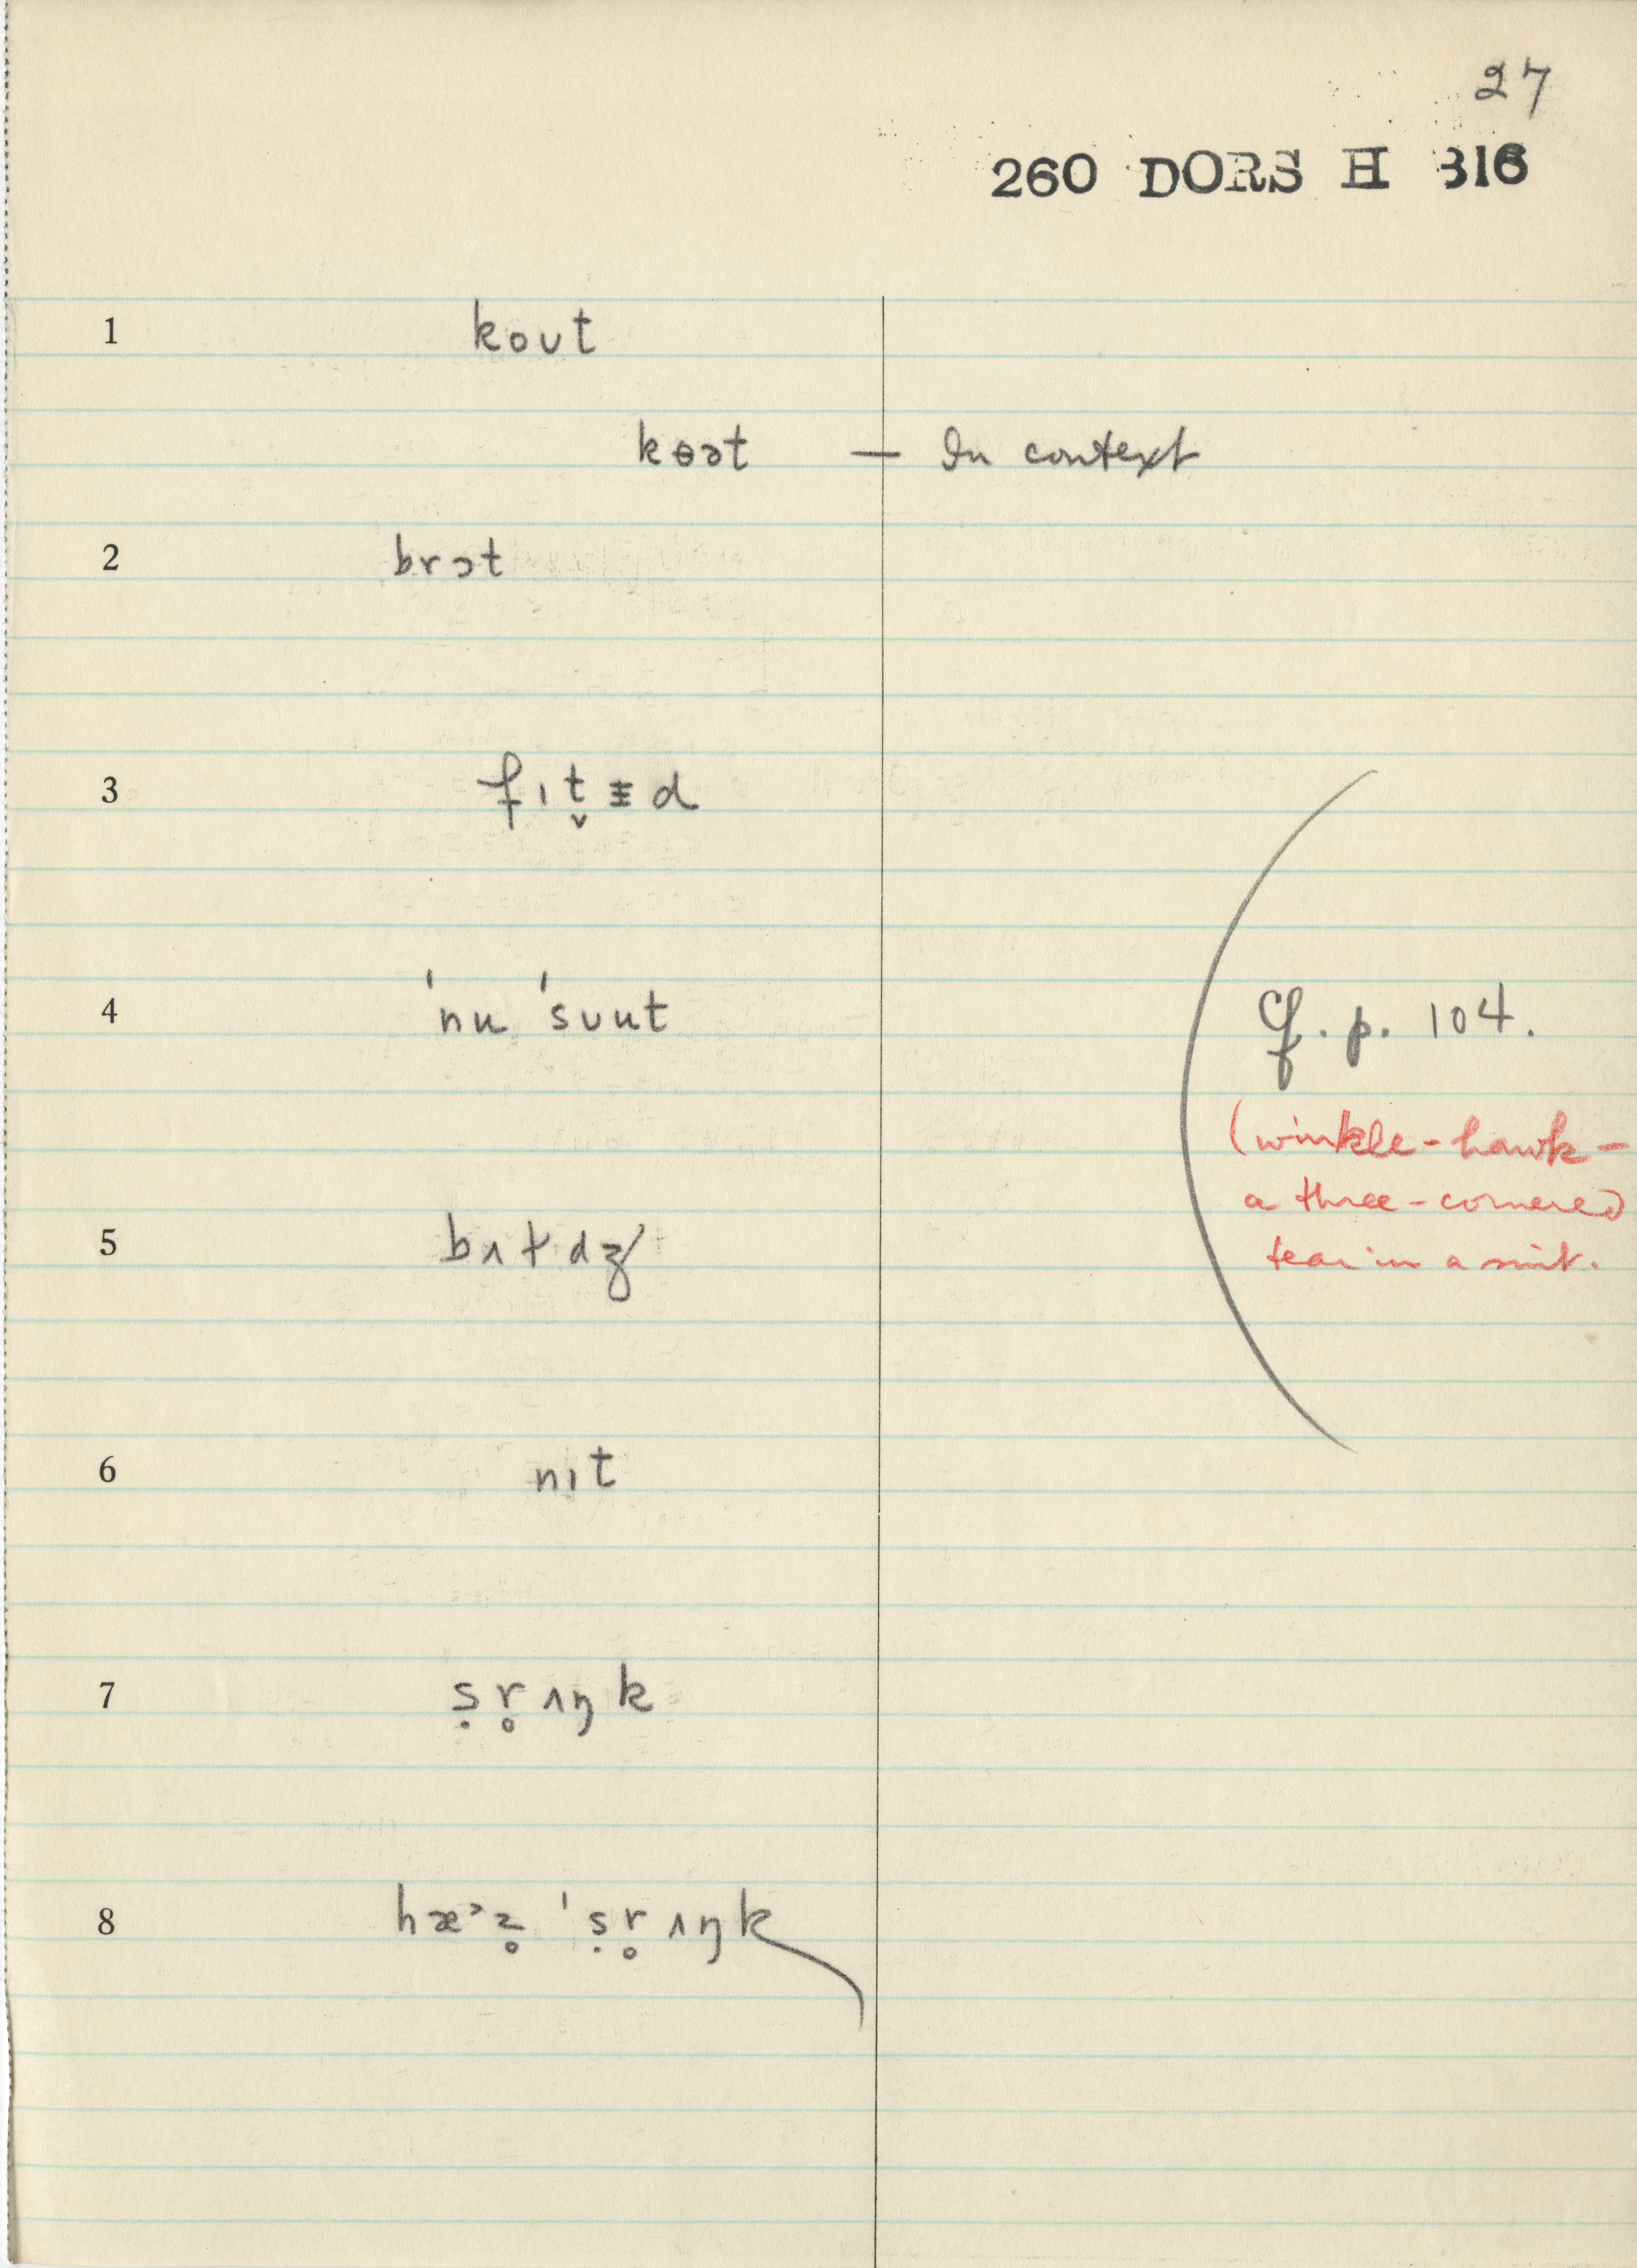 27
260 DORS H 316
1 koʊt
kɵət — In context
2 brɔt
3 fɪt̬ɨd
4 ˈnu ˈsʊut
5 bʌtdʒ
6 nɪt
7 ṣr̥ʌŋk
8 hæ˃z̥ ˈṣr̥ʌŋk
Cf. p. 104.
(winkle-hawk –
a three-cornered
tear in a suit.